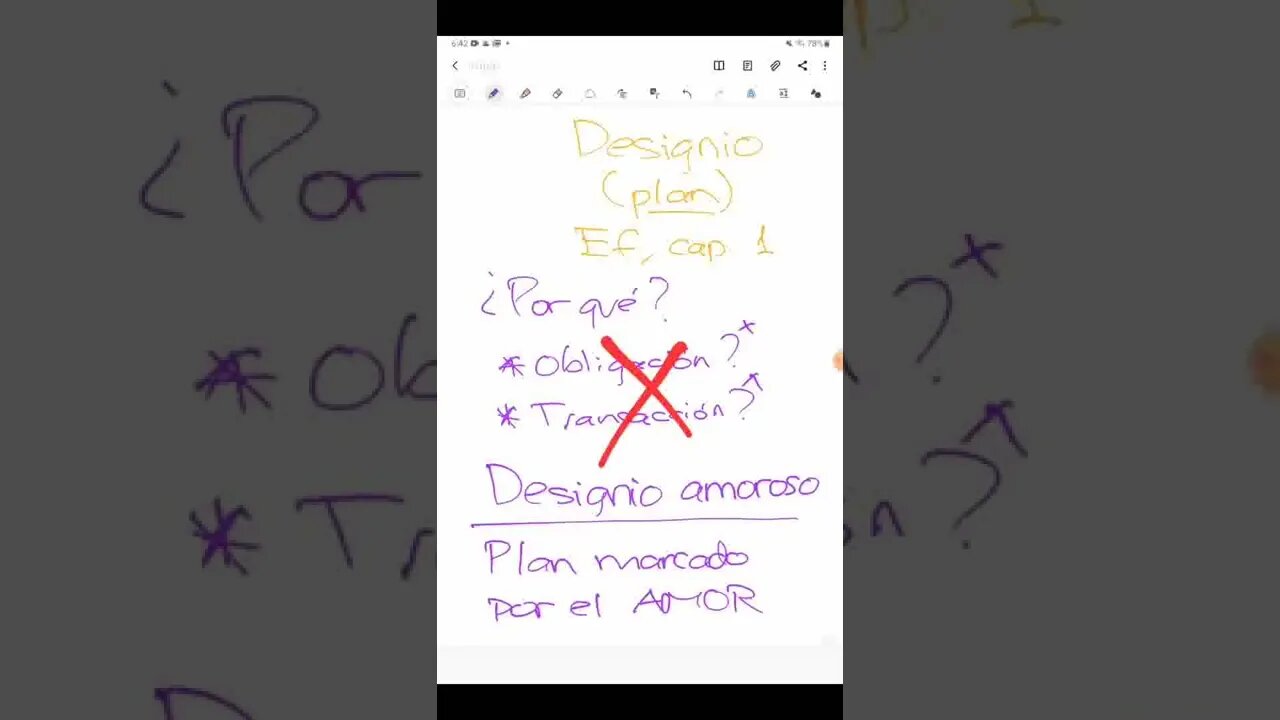 6:42
78%
Designio
(plan)
Ef, cap. 1
¿Por qué?
* Obligación?*
* Transacción?*
Designio amoroso
Plan marcado
por el AMOR